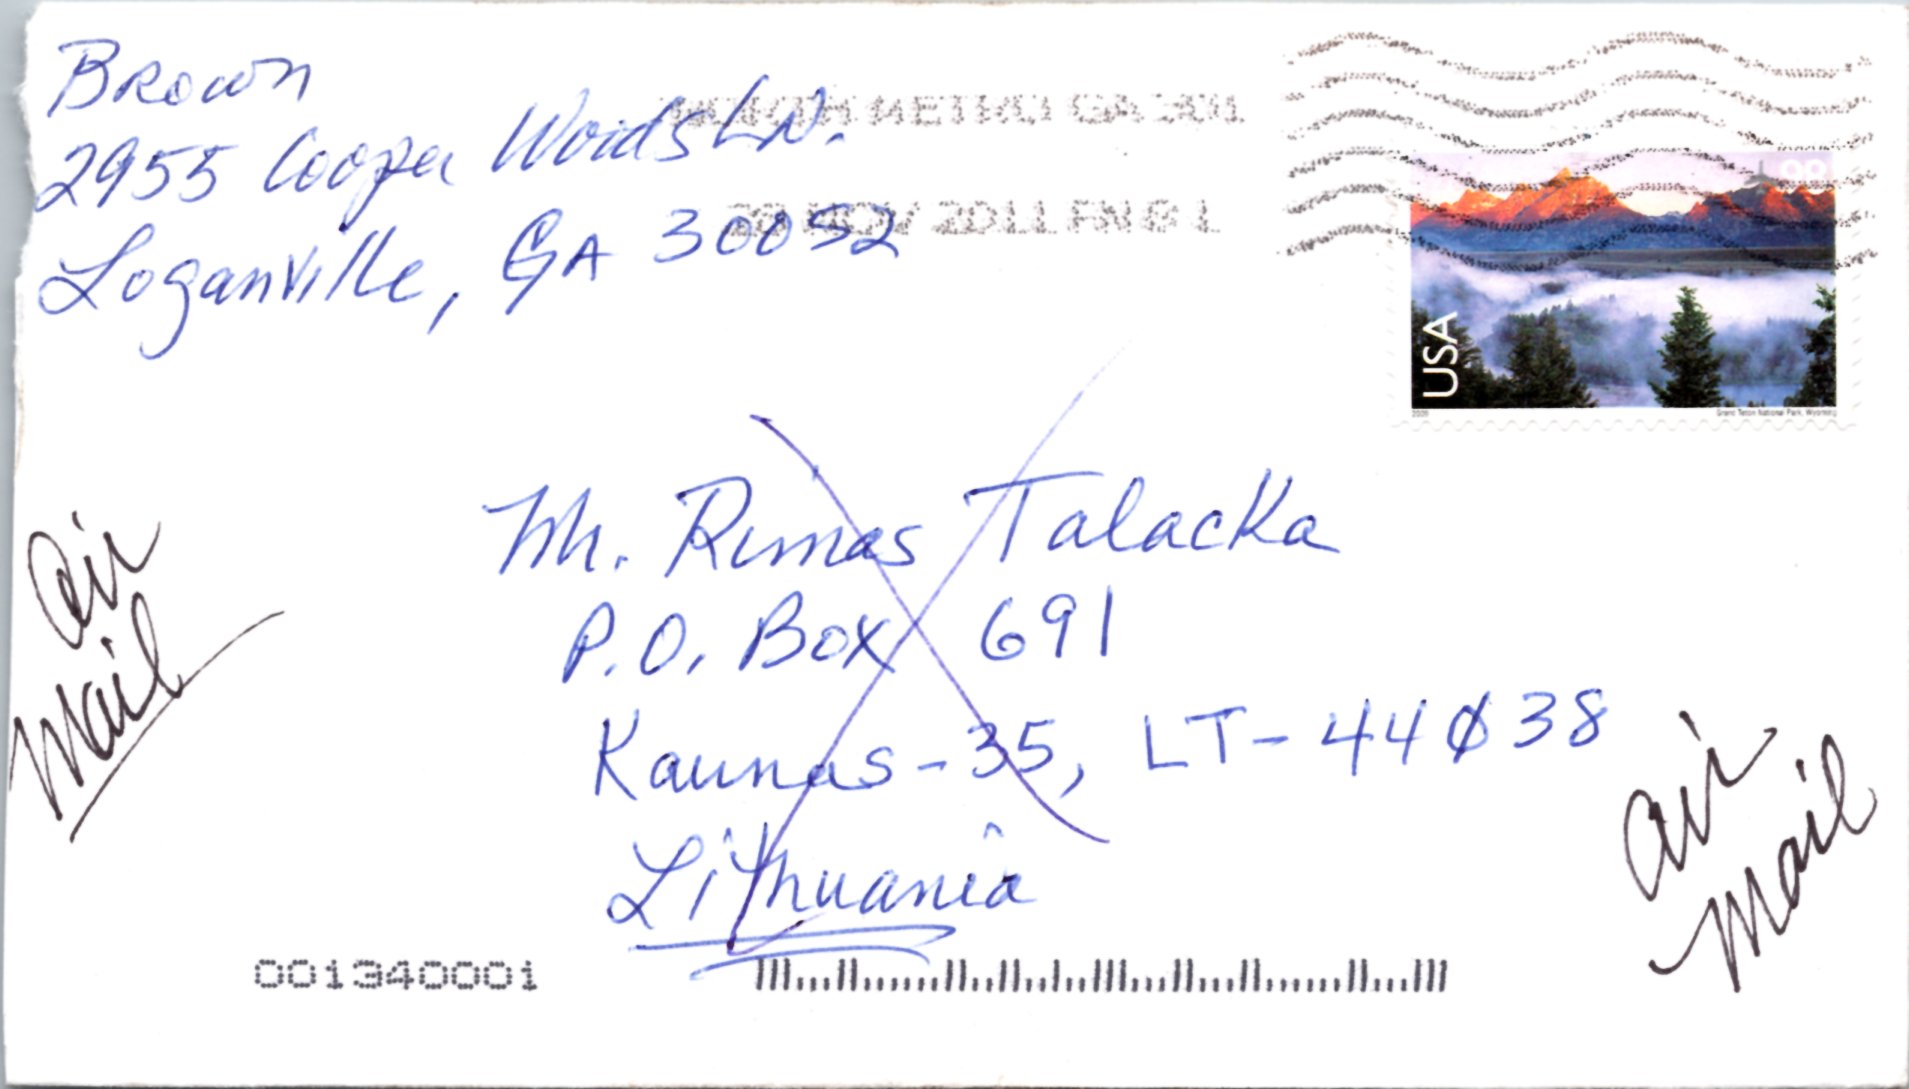 Brown
2955 Cooper Woods LN.
Loganville, GA 30052
NORTH METRO GA 301
NOV 2011 PM 6 L
98
USA
2009
Grand Teton National Park, Wyoming
Air
Mail
Mr. Rimas Talacka
P.O. Box 691
Kaunas-35, LT-44038
Lithuania
Air
Mail
001340001